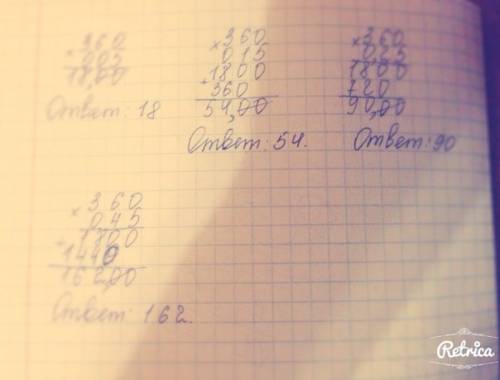 × 360
0,05
18,00
Ответ: 18
× 360
0,15
1800
+ 360
54,00
Ответ: 54.
× 360
0,25
1800
720
90,00
Ответ: 90
× 360
0,45
+ 1800
1440
162,00
Ответ: 162.
Retrica